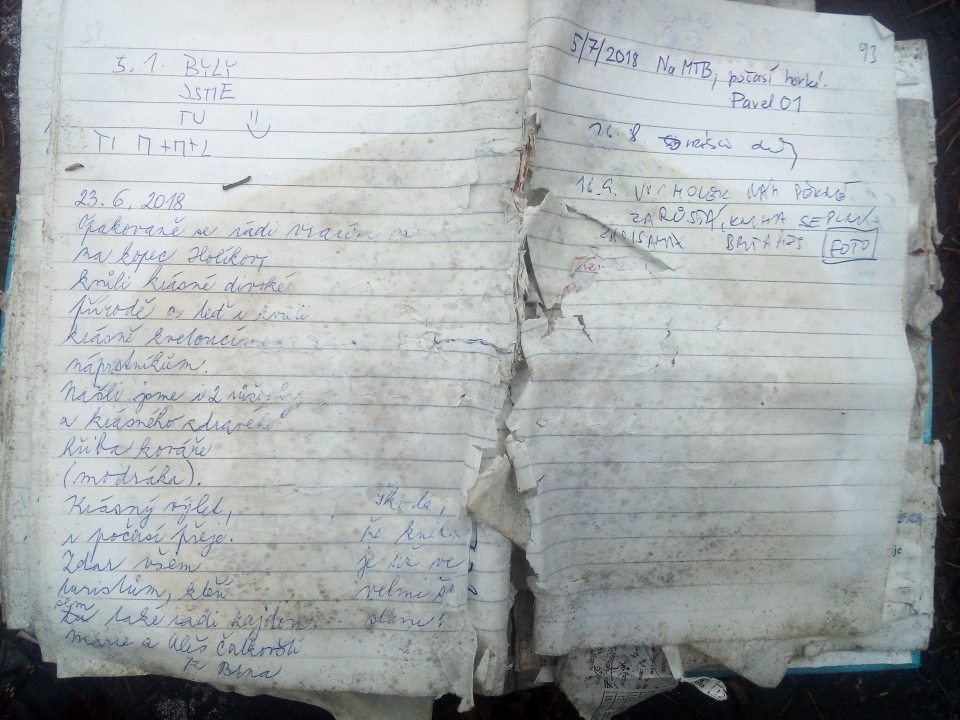 5. 1. BYLY
JSME
TU
TI M+M+L
23. 6. 2018
Opakovaně se rádi vracím
na kopec Holíkov
kvůli krásné divoké
přírodě a teď i kvůli
krásně kvetoucím
náprstníkům.
Našli jsme i 2
a krásného zdravého
hřiba kováře
(modráka).
Krásný výlet,
i počasí přeje.
Zdar všem
turistům, kteř
sem také rádi zajdou.
Marie a Aleš
z Brna
škoda,
že kniha
je už ve
velmi š
stavu!
93
5/7/2018 Na MTB, počasí horké.
Pavel 01
16 8
16.9. VRCHOLEK NÁM PĚKNĚ
ZARŮSTÁ, KNIHA SE
FOTO
je